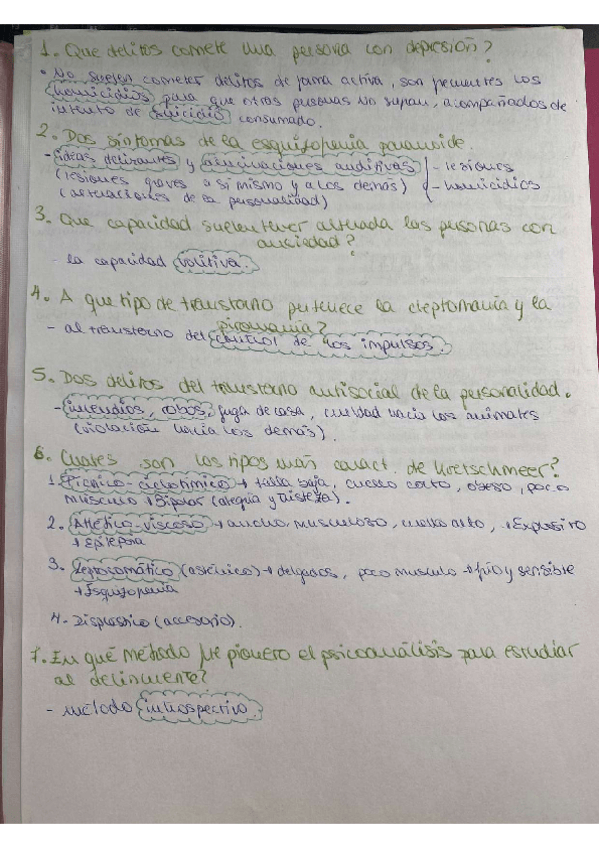 1. Que delitos comete una persona con depresión?
• No suelen cometer delitos de forma activa, son frecuentes los
homicidios para que otras personas no sufran, acompañados de
intento de suicidio consumado.
2. Dos síntomas de la esquizofrenia paranoide.
- ideas delirantes y alucinaciones auditivas - lesiones
(lesiones graves a si mismo y a los demás) - homicidios
(alteraciones de la personalidad)
3. Que capacidad suelen tener alterada las personas con
ansiedad?
- la capacidad volitiva.
4. A que tipo de transtorno pertenece la cleptomanía y la
piromanía?
- al transtorno del control de los impulsos.
5. Dos delitos del transtorno antisocial de la personalidad.
- incendios, robos, fuga de casa, crueldad hacia los animales
(violación hacia los demás).
6. Cuales son los tipos más caract. de Kretschmeer?
1. Pícnico-ciclotímico → talla baja, cuello corto, obeso, poco
músculo → Bipolar (alegría y tristeza).
2. Atlético-viscoso → ancho, musculozo, cuello alto, → Explosivo
→ Epilepsia
3. Leptosomático (asténico) → delgados, poco musculo → frío y sensible
→ Esquizofrenia
4. Displástico (accesorio).
7. En qué método fue pionero el psicoanálisis para estudiar
al delincuente?
- método introspectivo.